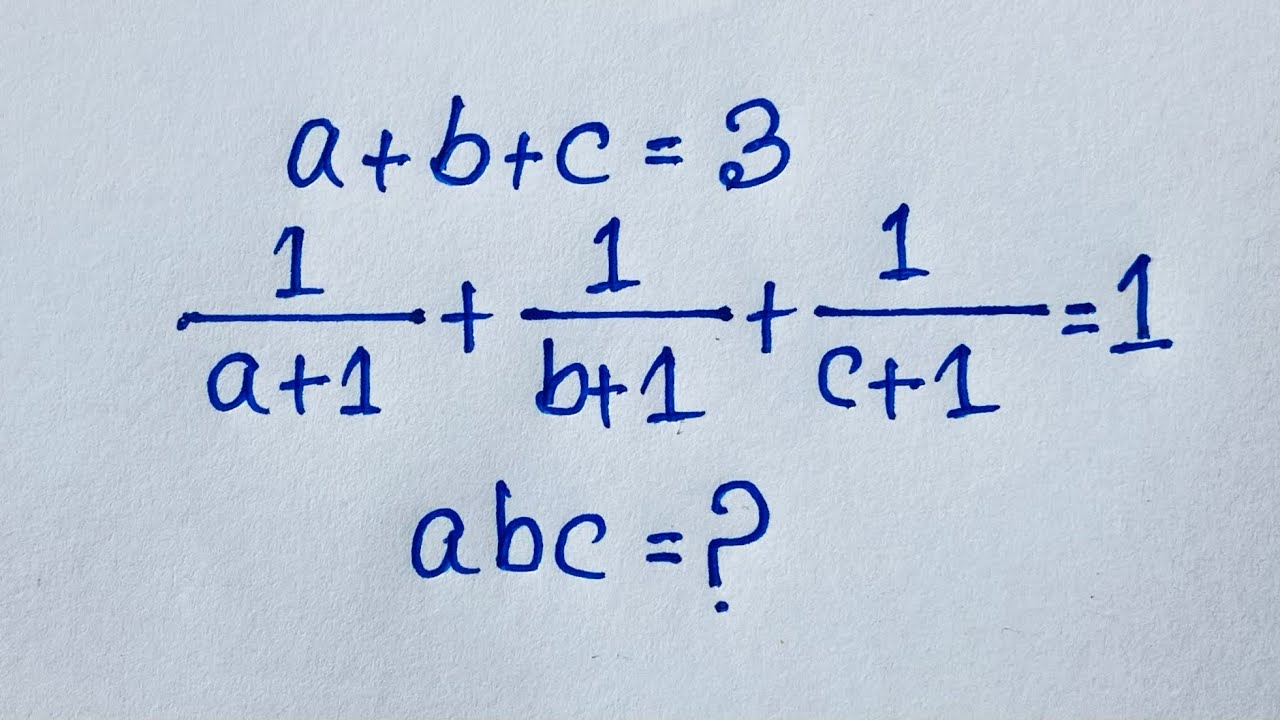 a+b+c=3
1/(a+1) + 1/(b+1) + 1/(c+1) = 1
abc=?